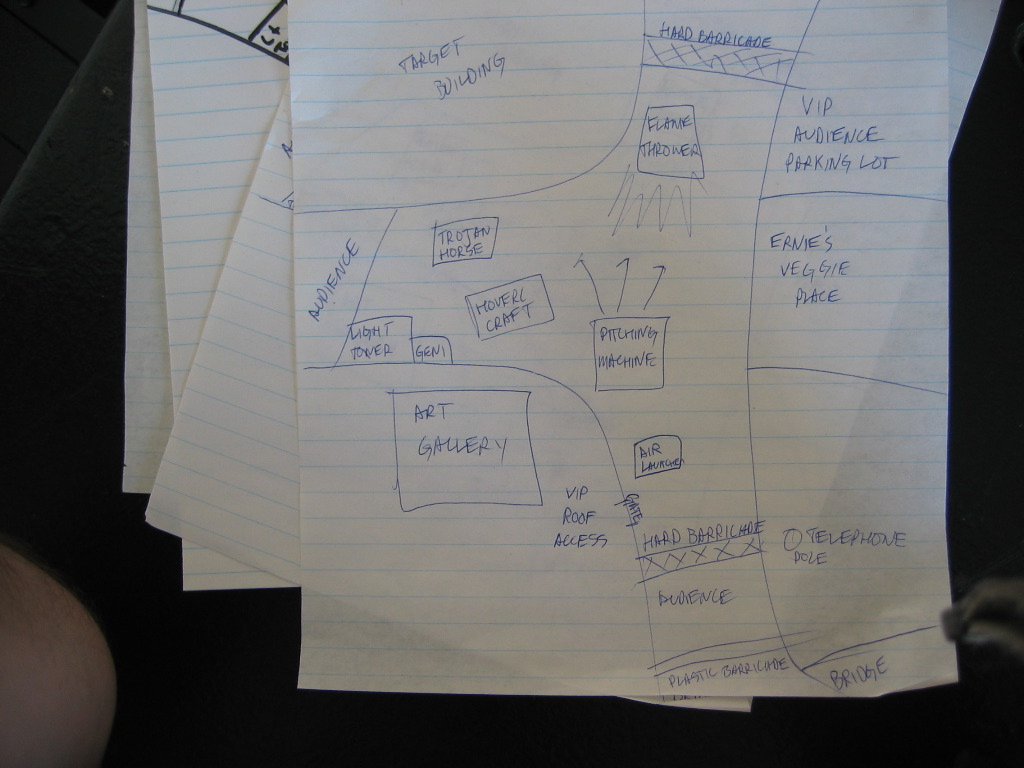 HARD BARRICADE
TARGET
BUILDING
FLAME
THROWER
VIP
AUDIENCE
PARKING LOT
TROJAN
HORSE
AUDIENCE
ERNIE'S
VEGGIE
PLACE
HOVERC
CRAFT
LIGHT
TOWER
GEN1
PITCHING
MACHINE
ART
GALLERY
AIR
LAUNCHER
VIP
ROOF
ACCESS
GATE
HARD BARRICADE
TELEPHONE
POLE
AUDIENCE
PLASTIC BARRICADE
BRIDGE